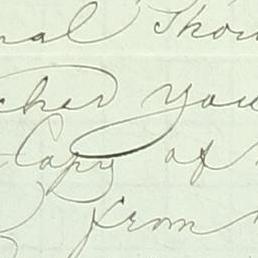 nal Thou
cher you
Copy of
from